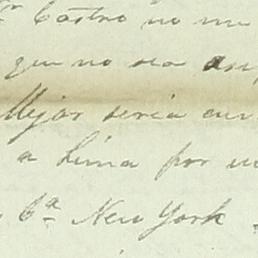 Castro no me
que no sea
Mejor seria
a Lima por
Cª New York